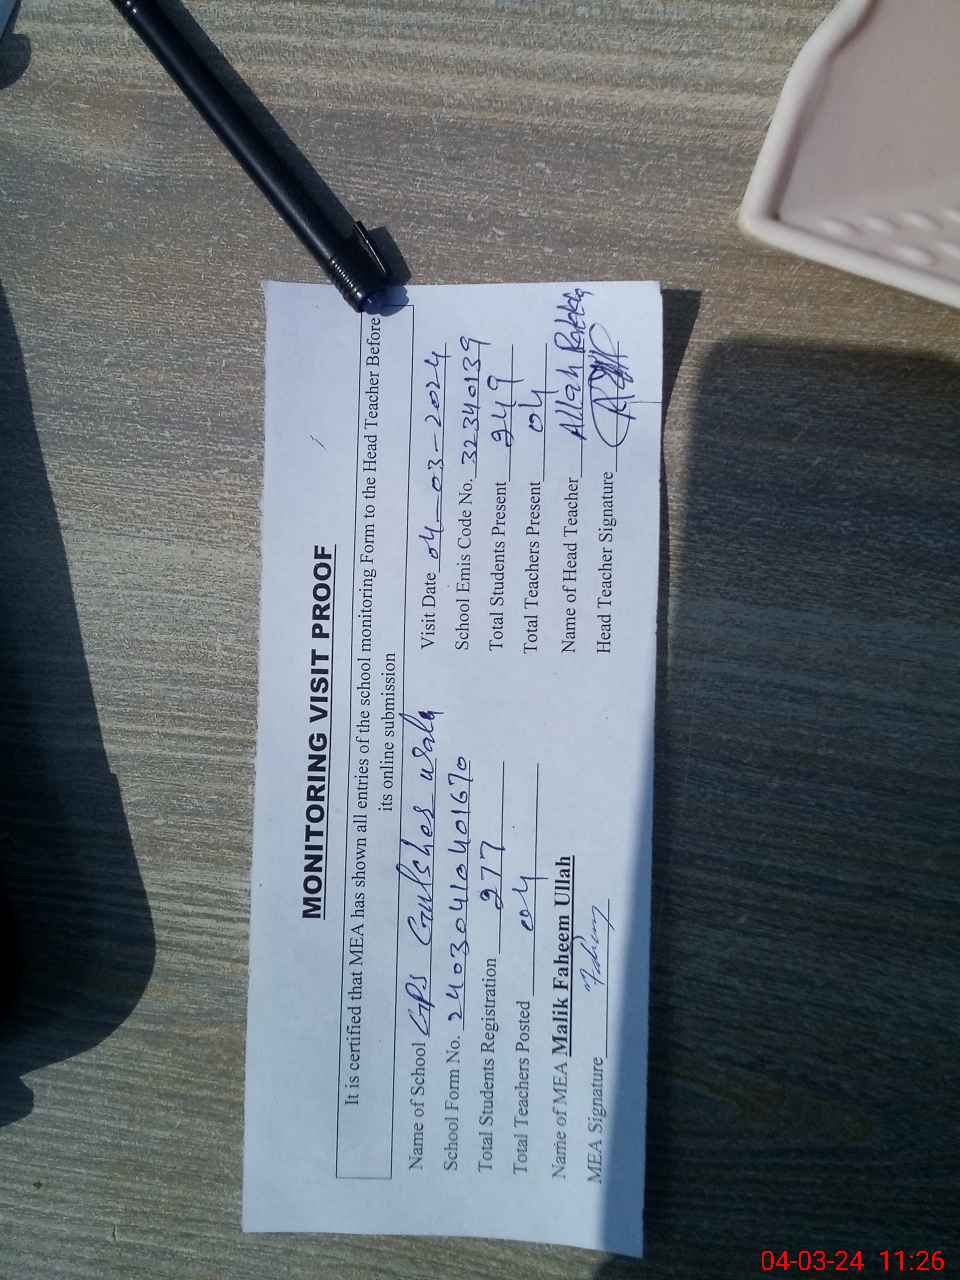 MONITORING VISIT PROOF
It is certified that MEA has shown all entries of the school monitoring Form to the Head Teacher Before
its online submission
Name of School GPS Gulsher wala Visit Date 04-03-2024
School Form No. 2403041040401670 School Emis Code No. 32340139
Total Students Registration 277 Total Students Present 249
Total Teachers Posted 04 Total Teachers Present 04
Name of MEA Malik Faheem Ullah Name of Head Teacher Allah Rakha
MEA Signature Faheem Head Teacher Signature
04-03-24 11:26